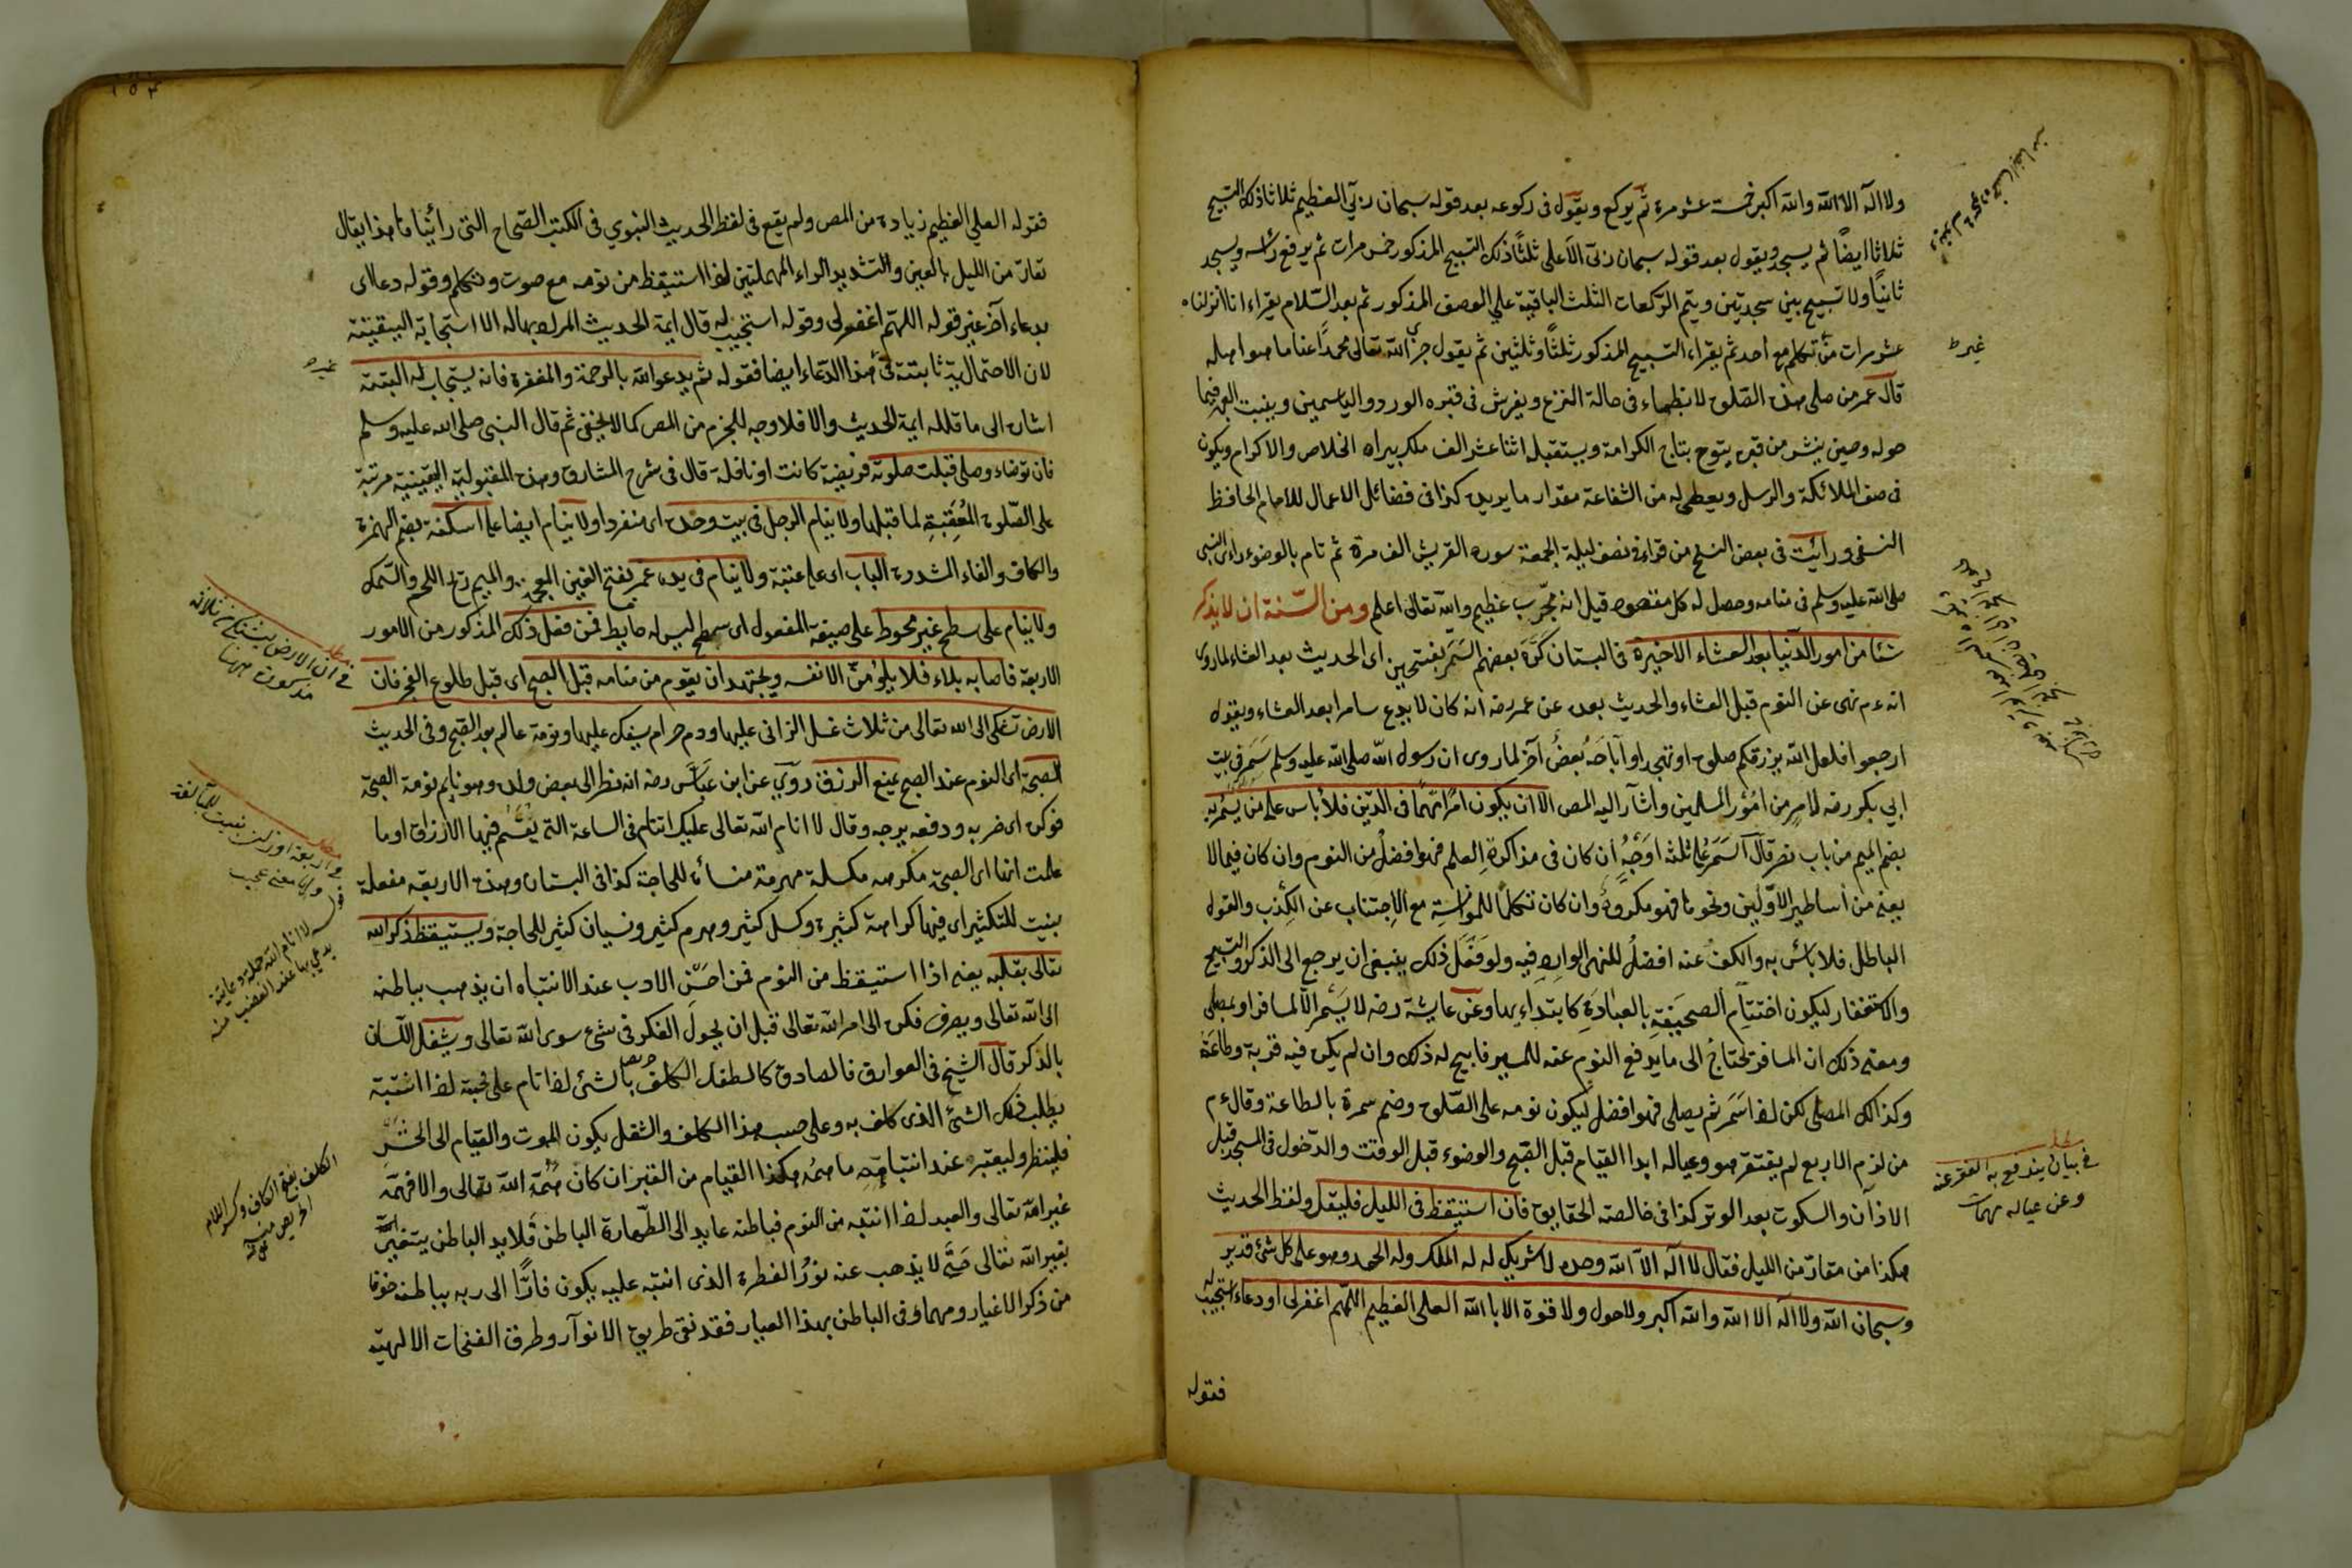 ولا اله الا الله والله اكبر خمسة عشر مرة ثم يركع ويقول فى ركوعه بعد قوله سبحان ربي العظيم ثلاثا ذلك التسبيح
ثلاثا ايضًا ثم يسجد ويقول بعد قوله سبحان ربى الاعلى ثلثًا ذلك التسبيح المذكور خمس مرات ثم يرفع رأسه ويسجد
ثانيًا ولا تسبيح بين سجدتين ويتم الركعات الثلث الباقية علي الوصف المذكور ثم بعد السّلام يقراء انا انزلناه
عشر مرات من تكلم مع احد ثم يقراء التسبيح المذكور ثلثًا وثلثين ثم يقول جزى الله تعالى محمدًا عنا ما هو اهله
قال عمر من صلى هذه الصّلوة لا يظماء فى حالة النزع ويفرش فى قبره الورد والياسمين وينبت العبهر فيما
حوله وحين ينشر من قبره يتوج بتاج الكرامة ويستقبله اثنا عشر الف ملك بيراه الخلاص والاكرام ويكون
فى صف الملائكة والرسل ويعطى له من الشفاعة مقدار ما يريده كذا فى فضائل الاعمال للامام الحافظ
النسفى ورأيت فى بعض النسخ من قراء فى نصف ليلة الجمعة سوره القريش الف مرة ثم نام بالوضوء راى النبى
صلى الله عليه وسلم فى منامه وحصل له كل مقصوده قيل انه مجرّب عظيم والله تعالى اعلم ومن السّنة ان لا يذكر
شئا من امور الدّنيا بعد العشاء الاخيرة فى البستان كرّه بعضهم السَمَر بفتحين اى الحديث بعد العشاء لما روى
انه ءم نهى عن النوم قبل العشاء والحديث بعده عن عمر رضه انه كان لا يدع سامرا بعد العشاء ويقول
ارجعوا فلعل الله يرزقكم صلوة او تهجدا وآباحَهُ بعضٌ آخر لما روى ان رسول الله صلى الله عليه وسلم سَمَر فى بيت
ابي بكر رضه لامر من امُوْر المسلمين واشار اليه المص الا ان يكون امرًا مهمًا فى الدّين فلا باس على من يسمُر به
بضم الميم من باب نصر قال السَمَرُ على ثلثة اَوْجُهٍ ان كان فى مذاكرة العلم فهو افضلُ من النوم وان كان فيما لا
يعنى من أساطير الاوّلين ونحوها فهو مكروهٌ وان كان تكلمًا للموانسة مع الاجتناب عن الكذب والقول
الباطل فلا بأس به والكف عنه افضلُ للنهى الوارد فيه ولو فَعَلَ ذلك ينبغى ان يرجع الى الذكر والتسبيح
والاستغفار ليكون اختتامُ الصحيفة بالعبادة كابتداءِ بها وعن عايشة رضه لا يسمر الا لمسافر او مصلى
ومعنى ذلك ان المسافر يحتاج الى ما يدفع النوم عنه للسير فابيح له ذلك وان لم يكن فيه قربة وطاعة
وكذالك المصلى لكن لذا سَمَر ثم يصلى فهو افضل ليكون نومه على الصّلوة وختم سمرة بالطاعة وقال ءم
من لزم الاربع لم يفتقر هو وعياله ابدا القيام قبل الصّبح والوضوء قبل الوقت والدّخول فى المسجد قبل
الاذآن والسكوت بعد الوتر كذا فى خالصة الحقايق فان استيقظ فى الليل فليقل ولفظ الحديث
هكذا من تعارّ من الليل فقال لا اله الا الله وحده لا شريك له له الملك وله الحمد وهو على كل شئ قدير
وسبحان الله ولا اله الا الله والله اكبر ولا حول ولا قوة الا بالله العلى العظيم اللّهم اغفر لى او دعاء استجيب له
فقوله
غيره
مطلب
فى بيان يندفع به الفقر عنه
وعن عياله مهمات
فقوله العلي العظيم زيادة من المص ولم يقع فى لفظ الحديث النبوي فى الكتب الصّحاح التى رأيناها هذا يقال
تعارّ من الليل بالعين والتشديد الراء المهملتين لذا استيقظ من نومه مع صوت وتكلم وقوله دعا اى
بدعاء آخر غير قوله اللهم اغفر لى وقوله استجيب له قال ايمة الحديث المراد بها له الا استجابة اليقينة
لان الاحتمالية ثابتة فى هذا الدّعاء ايضا فقوله ثم يدعو الله بالرحمة والمغفرة فانه يستجاب له البتة
اشارة الى ما قاله ايمة الحديث والا فلا وجه للجزم من المص كما لا يخفى ثم قال النبى صلى الله عليه وسلم
فان توضاء وصلى قبلت صلوته فريضة كانت او نافلة قال فى شرح المشارق وهذه المقبولية اليقينية مرتبة
على الصّلوة المُعقبةِ لما قبلها ولا ينام الرجل فى بيت وحده اى منفردا ولا ينام ايضا على اسكفة بضم الهمزة
والكاف والفاء المشددة الباب اى على عتبة ولا ينام فى يده غمر بفتح الغين المعجمة والميم ريح اللحم والسمك
ولا ينام على سطح غير محوط على صيغة المفعول اى سطح ليس له حايط فمن فعل ذلك المذكور من الامور
الاربعة فاصابه بلاء فلا يلومنّ الا نفسه ويجتهد ان يقوم من منامه قبل الصبح اى قبل طلوع الفجر فان
الارض تشكى الى الله تعالى من ثلاث غسل الزانى عليها ودم حرام يسفك عليها ونومة عالم بعد الصّبح وفى الحديث
الصبحة اى النوم عند الصبح يمنع الرزق روى عن ابن عبّاس رضه انه نظر الى بعض ولده وهو نايم نومة الصبحة
فوكزه اى ضربه ودفعه برجه وقال لا انام الله تعالى عليك اتنام فى الساعة التى يُقسم فيها الارزاق او ما
علمت انها اى الصبحة مكرهه مكسلة مهرمة منساة للحاجة كذا فى البستان وهذه الاربعة مفعلة
بنيت للتكثير اى فيها كراهة كثيرة وكسل كثير وهرم كثير ونسيان كثير للحاجة ويستيقظ ذكر الله
تعالى بقلبه يعنى اذا استيقظ من النوم فمن احسن الادب عند الانتباه ان يذهب بباطنه
الى الله تعالى ويصرف فكره الى امر الله تعالى قبل ان يجول الفكر فى شئ سوى الله تعالى ويشغل اللّسان
بالذكر قال الشيخ فى العوارف فالصادق كالطفل الكلف بالشئ لذا نام على محبة لذا انتبه
يطلب ذلك الشئ الذى كلف به وعلى حسب هذا الكلف والشغل يكون الموت والقيام الى الحشر
فلينظر وليعتبر عند انتباهه ما همه هكذا القيام من القبر ان كان همّه الله تعالى والا فهمّه
غير الله تعالى والعبد لذا انتبه من النوم فباطنه عايد الى الطّهارة الباطن فلا يدع الباطن يتغيّر
بغير الله تعالى حتّى لا يذهب عنه نورُ الفطرة الذى انتبه عليه يكون فارّا الى ربه بباطنه خوفا
من ذكر الاغيار ومهما وفى الباطن بهذا العيار فقد نقى طريق الانوآر وطرق النفحات الالهية
مطلب
فى ان الارض يشتكى من ثلاثة
مذكورة ههنا
مطلب
قوله لا انام الله جملة دعائية
يدعى بها عند الغضب منه
الكلف بفتح الكاف وكسر اللام
الحريص منه